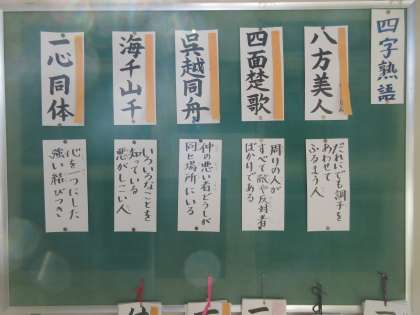 四字熟語
八方美人
だれにでも調子を
あわせて
ふるまう人
四面楚歌
周りの人が
すべて敵や反対者
ばかりである
呉越同舟
仲の悪い者どうしが
同じ場所にいる
海千山千
いろいろなことを
知っている
悪がしこい人
一心同体
心を一つにした
強い結びつき